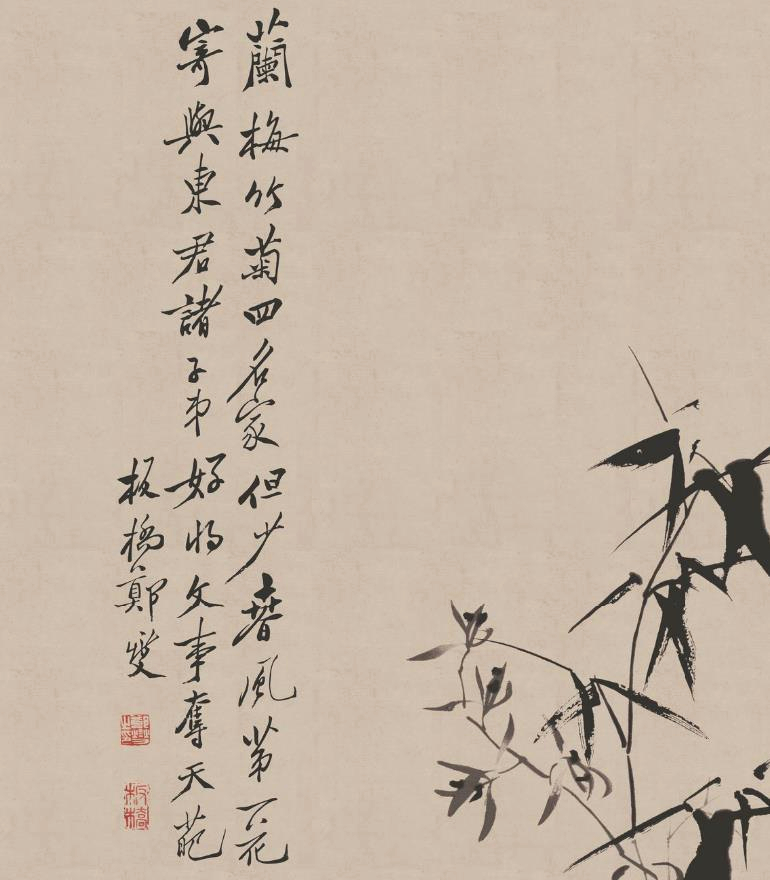 蘭梅竹菊四名家但少春風第一花
寄與東君諸子弟好將文事奪天葩
板橋鄭燮
鄭燮之印